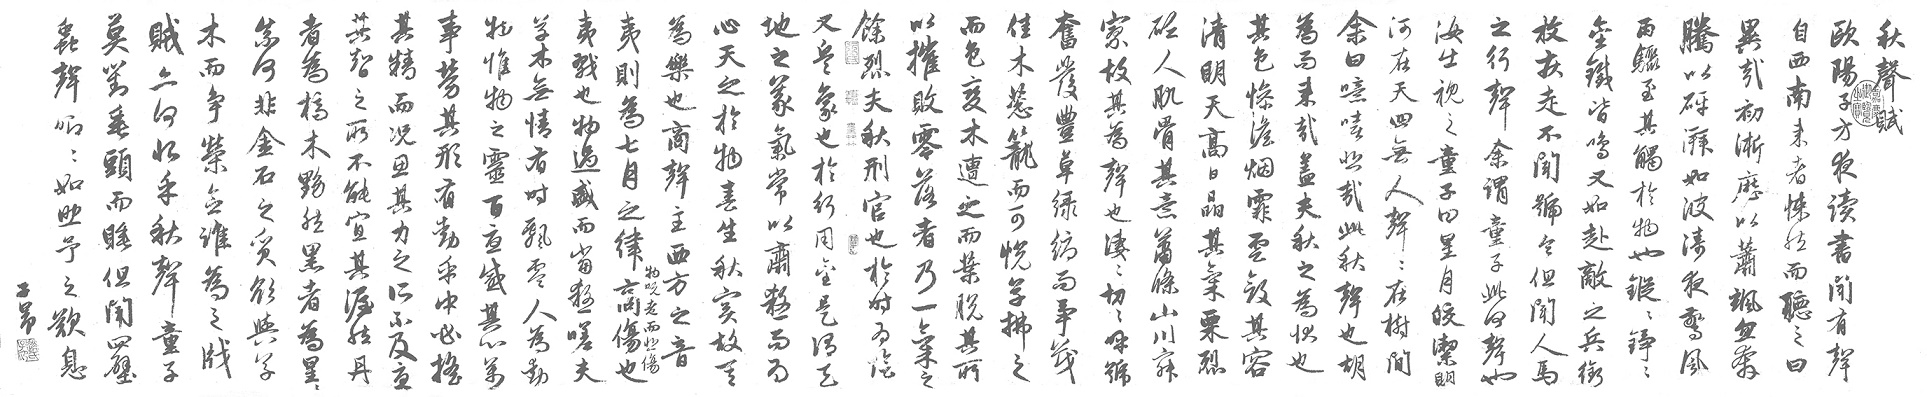 秋聲賦
歐陽子方夜读書聞有聲
自西南来者悚然而聽之曰
異哉初淅瀝以蕭颯忽奔
騰以砰湃如波濤夜驚風
雨驟至其觸於物也鏦〻錚〻
金鐵皆鳴又如赴敵之兵銜
枚疾走不聞號令但聞人馬
之行聲余謂童子此何聲也
汝出視之童子曰星月皎潔明
河在天四無人聲〻在樹間
余曰噫嘻悲哉此秋聲也胡
為而来哉蓋夫秋之為狀也
其色惨澹烟霏雲斂其容
清明天高日晶其氣栗烈
砭人肌骨其意蕭條山川寂
寥故其為聲也淒〻切〻呼號
奮發豐草绿縟而争茂
佳木葱籠而可悦草拂之
而色變木遭之而葉脱其所
以摧敗零落者乃一氣之
餘烈夫秋刑官也於时為陰
又兵象也於行用金是谓天
地之義氣常以肅殺而為
心天之於物春生秋實故其
為樂也商聲主西方之音
夷則為七月之律商傷也
物既老而悲傷
夷戮也物過盛而當殺嗟夫
草木無情有时飄零人為動
物惟物之靈百憂感其心萬
事勞其形有動乎中必搖
其精而况思其力之所不及憂
其智之所不能宜其渥然丹
者為槁木黟然黑者為星〻
奈何非金石之質欲與草
木而争榮念誰為之戕
賊亦何恨乎秋聲童子
莫對垂頭而睡但聞四壁
蟲聲唧〻如助予之歎息
子昂